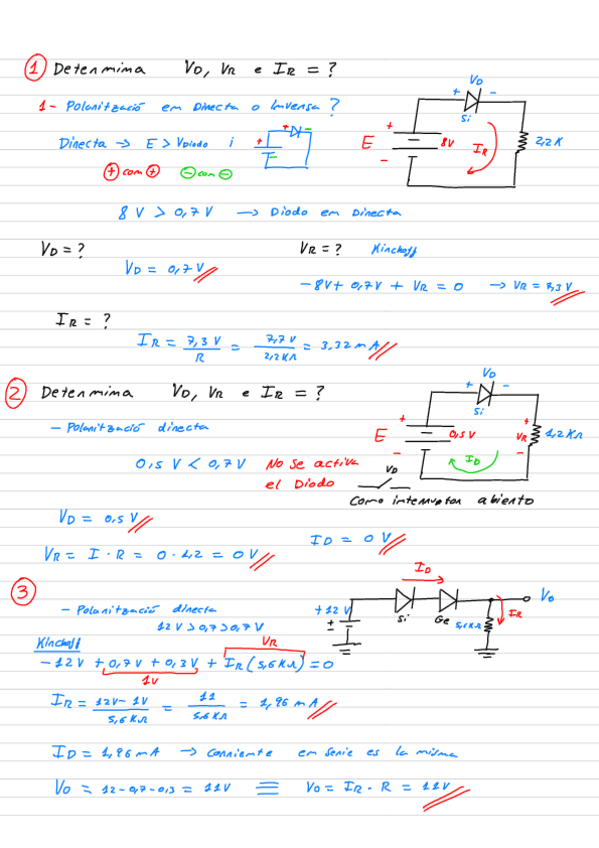 1 Determina VD, VR e IR = ?
1- Polarització em Directa o Inversa ?
Directa → E > VDiodo i
+ com + - com -
VD
+ -
Si
E + - 8V IR 2,2K
8V > 0,7V → Diodo em Directa
VD = ? VR = ? Kirchoff
VD = 0,7V
-8V + 0,7V + VR = 0 → VR = 7,3V
IR = ?
IR = 7,3V / R = 7,7V / 2,2KΩ = 3,32mA
2 Determina VD, VR e IR = ?
- Polarització directa
0,5V < 0,7V No se activa
el Diodo
VD
Como interruptor abierto
VD
+ -
Si
E + - 0,5V + VR - 1,2KΩ
ID
VD = 0,5V
ID = 0V
VR = I · R = 0 · 1,2 = 0V
3
- Polarització directa
12V > 0,7 > 0,7V
ID
+12V Si Ge Vo
+ - 5,6KΩ IR
Kirchoff VR
-12V + 0,7V + 0,3V + IR(5,6KΩ) = 0
1V
IR = 12V - 1V / 5,6KΩ = 11 / 5,6KΩ = 1,96mA
ID = 1,96mA → Corriente em serie es la misma
Vo = 12-0,7-0,3 = 11V ≡ Vo = IR · R = 11V